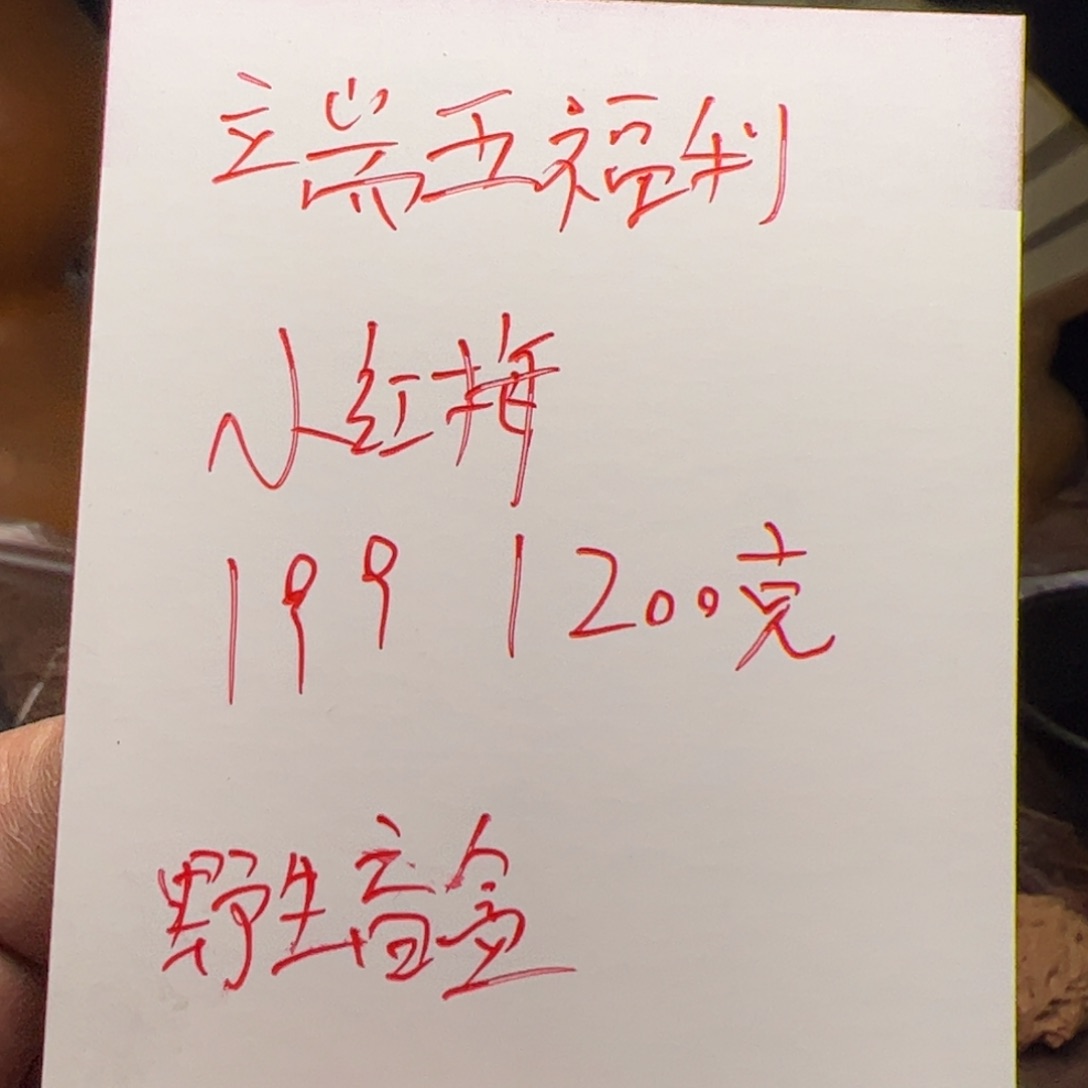 端五福利
小红梅
199 1200克
野生盲盒